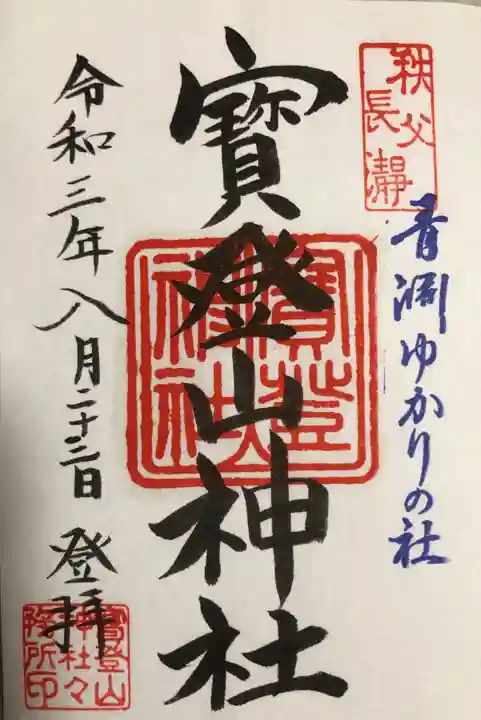 秩父
長瀞
青淵ゆかりの社
寶登山神社
寶登山
神社
令和三年八月二十三日 登拝
寶登山
神社々
務所印